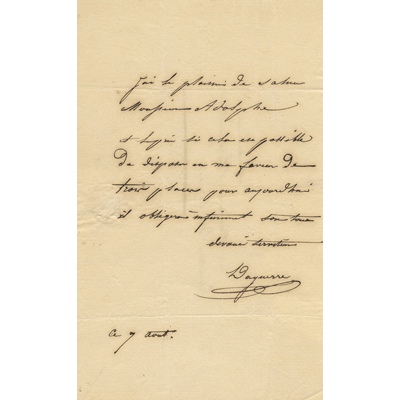 J'ai le plaisir de saluer
Monsieur Adolphe
et si cela est possible
De disposer en ma faveur de
trois places pour aujourd'hui
il obligera infiniment son tout
dévoué serviteur
Daguerre
ce 7 aout.